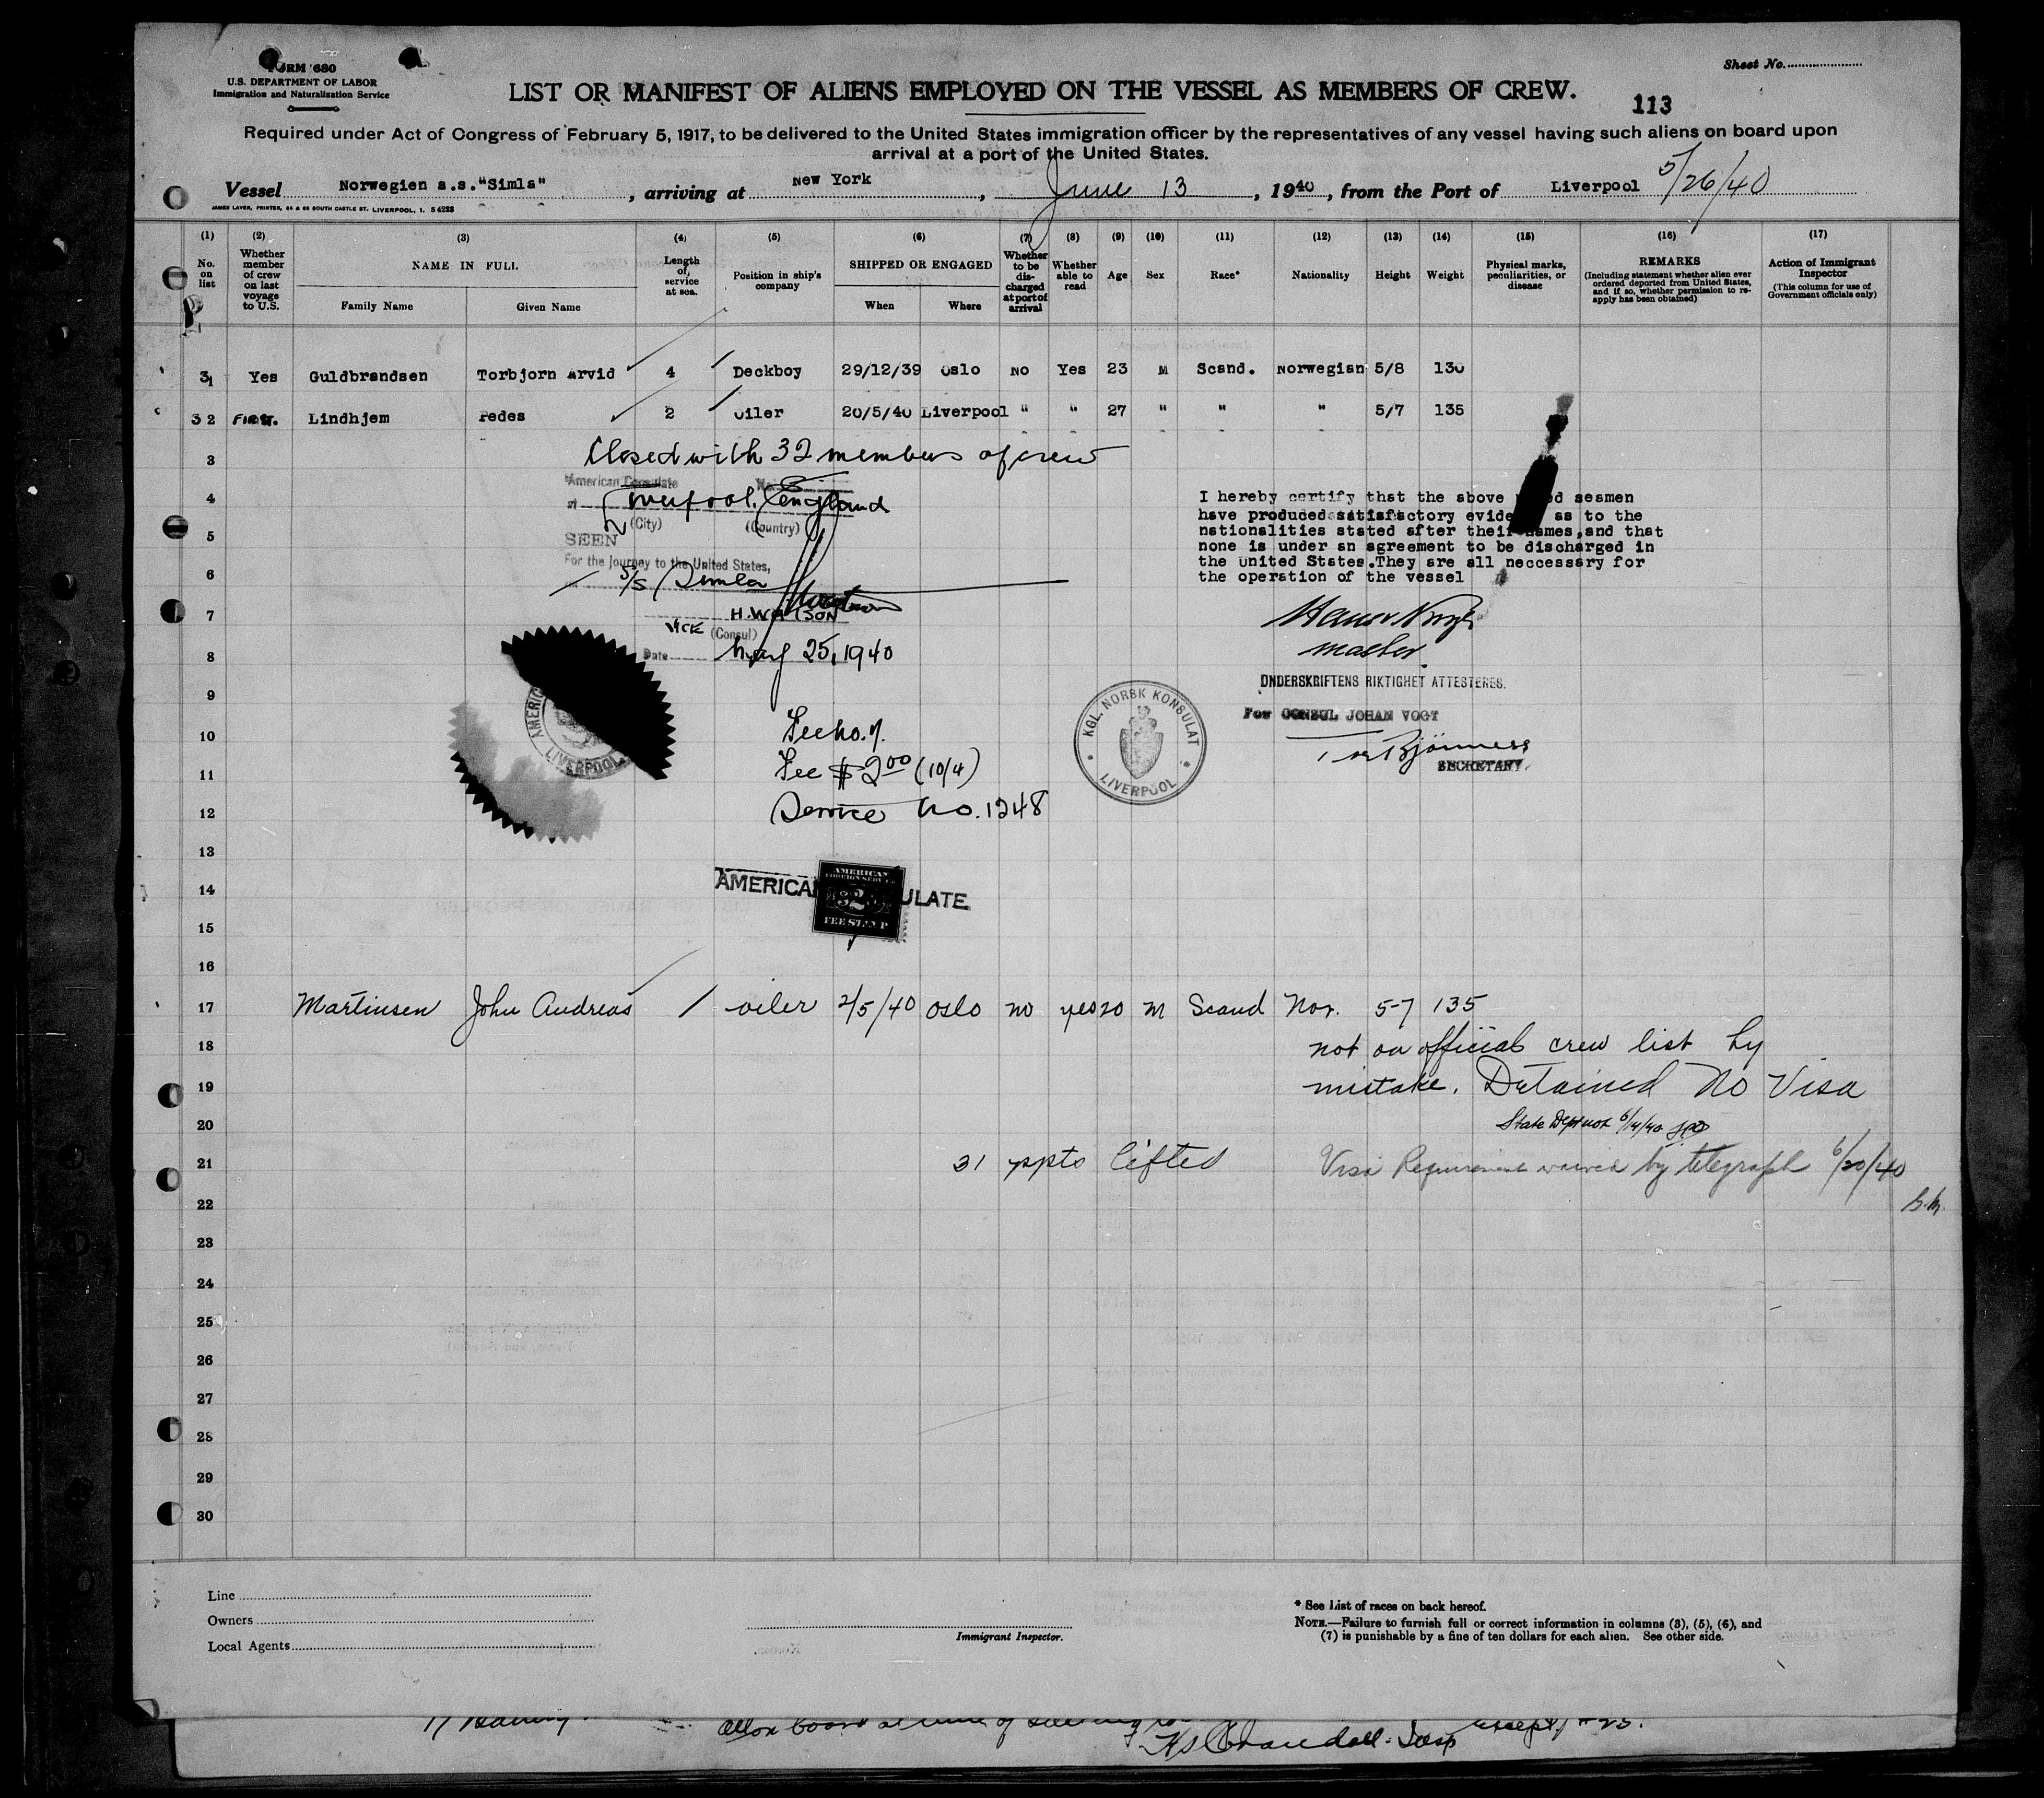 FORM 680
U.S. DEPARTMENT OF LABOR
Immigration and Naturalization Service
Sheet No.
LIST OR MANIFEST OF ALIENS EMPLOYED ON THE VESSEL AS MEMBERS OF CREW.
113
Required under Act of Congress of February 5, 1917, to be delivered to the United States immigration officer by the representatives of any vessel having such aliens on board upon
arrival at a port of the United States.
Vessel Norwegien s.s. "Simla", arriving at New York, June 13, 1940, from the Port of Liverpool 5/26/40
JAMES LAVER, PRINTER, 64 & 66 SOUTH CASTLE ST. LIVERPOOL, 1. S4233
(1) (2) (3) (4) (5) (6) (7) (8) (9) (10) (11) (12) (13) (14) (15) (16) (17)
No. on list
Whether member of crew on last voyage to U.S.
NAME IN FULL
Family Name
Given Name
Length of service at sea.
Position in ship's company
SHIPPED OR ENGAGED
When
Where
Whether to be discharged at port of arrival
Whether able to read
Age
Sex
Race*
Nationality
Height
Weight
Physical marks, peculiarities, or disease
REMARKS
(Including statement whether alien ever ordered deported from United States, and if so, whether permission to re-apply has been obtained)
Action of Immigrant Inspector
(This column for use of Government officials only)
31 Yes Guldbrandsen Torbjorn Arvid 4 Deckboy 29/12/39 Oslo No Yes 23 M Scand. Norwegian 5/8 130
32 First. Lindhjem Pedes 2 Oiler 20/5/40 Liverpool " " 27 " " " 5/7 135
3
Closed with 32 members of crew
American Consulate No.
4
at Liverpool, England
(City) (Country)
5
SEEN
For the journey to the United States,
6
on S/S Simla
7
H. WATSON
VICE (Consul)
8
Date May 25, 1940
I hereby certify that the above seamen
have produced satisfactory evidence as to the
nationalities stated after their names, and that
none is under an agreement to be discharged in
the United States. They are all neccessary for
the operation of the vessel
master.
UNDERSKRIFTENS RIKTIGHET ATTESTERES.
For CONSUL JOHAN VOGT
SECRETARY.
KGL. NORSK KONSULAT
LIVERPOOL
AMERICAN
LIVERPOOL
9
10
Fee No. 7.
11
Fee $2.00 (10/4)
12
Service No. 1248
13
14
AMERICAN CONSULATE
AMERICAN
FOREIGN SERVICE
2
FEE STAMP
15
16
17 Martinsen John Andreas 1 oiler 2/5/40 Oslo no yes 20 M Scand Nor. 5-7 135
18 not on official crew list by
19 mistake. Detained No Visa
20 State Dept not 6/14/40
21 31 ppts lifted Visa Requirement waived by telegraph 6/20/40
22
23
24
25
26
27
28
29
30
Line
Owners
Local Agents
Immigrant Inspector.
* See List of races on back hereof.
NOTE.—Failure to furnish full or correct information in columns (3), (5), (6), and
(7) is punishable by a fine of ten dollars for each alien. See other side.